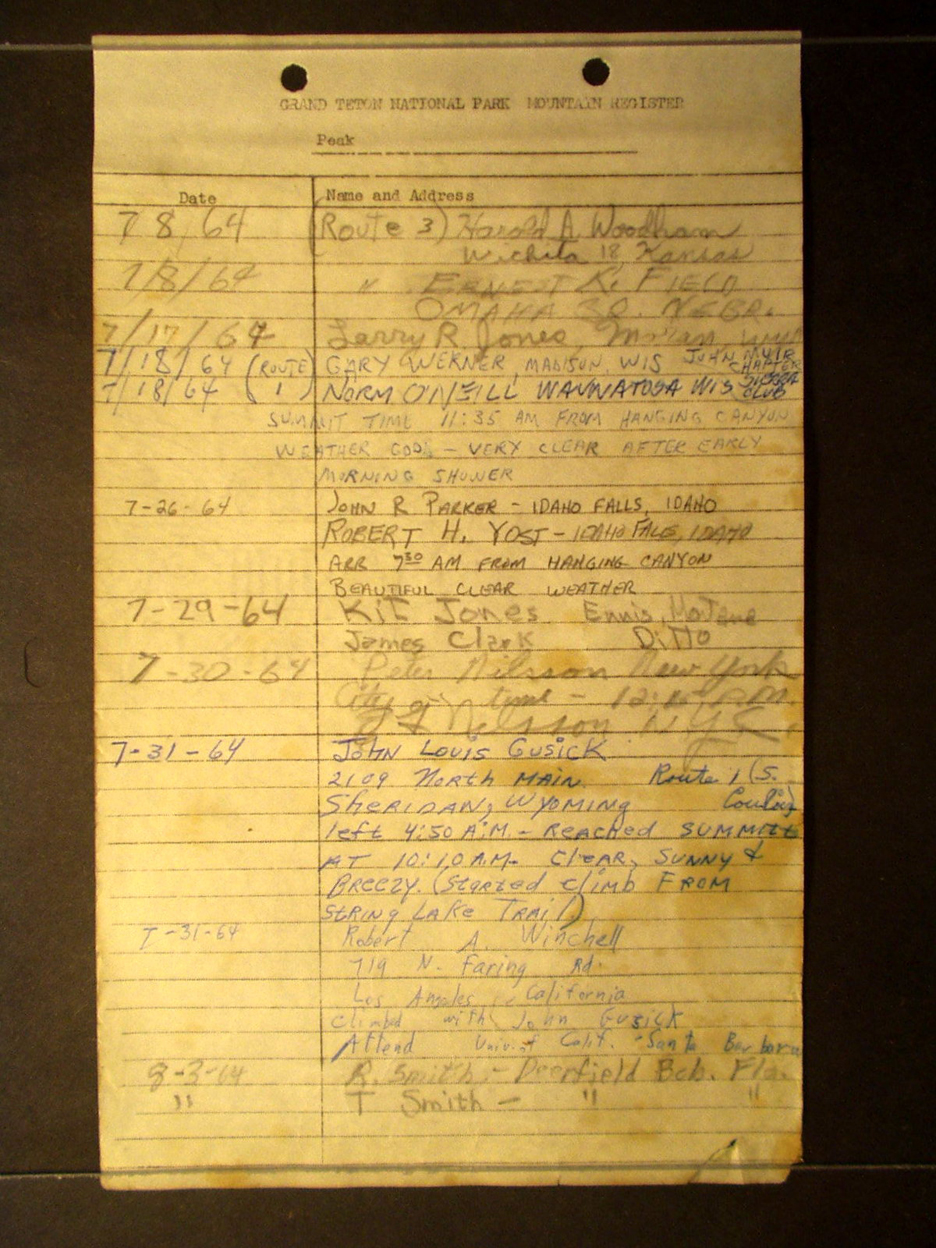 GRAND TETON NATIONAL PARK MOUNTAIN REGISTER
Peak
Date Name and Address
7/8/64 (Route 3) Harold A. Woodham
Wichita 18, Kansas
7/8/64 " ERNEST R. FIELD
OMAHA 32. NEBR.
7/17/64 Larry R. Jones, Moran, Wyo
7/18/64 (ROUTE GARY WERNER, MADISON, WIS JOHN MUIR CHAPTER
7/18/64 1) NORM O'NEILL WAUWATOSA WIS SIERRA CLUB
SUMMIT TIME 11:35 AM FROM HANGING CANYON
WEATHER GOOD - VERY CLEAR AFTER EARLY
MORNING SHOWER
7-26-64 JOHN R PARKER - IDAHO FALLS, IDAHO
ROBERT H. YOST - IDAHO FALLS, IDAHO
ARR 730 AM FROM HANGING CANYON
BEAUTIFUL CLEAR WEATHER
7-29-64 Kit Jones Ennis, Montana
James Clark Ditto
7-30-64 Peter Nilsson New York
City time - 12:15 P.M.
Nilsson N.Y.C.
7-31-64 JOHN LOUIS GUSICK
2109 NORTH MAIN Route 1 (S.
SHERIDAN, WYOMING Couloir)
left 4:50 A.M. - REACHED SUMMITT
AT 10:10 A.M. CLEAR, SUNNY &
BREEZY. (Started climb FROM
STRING LAKE TRAIL)
7-31-64 Robert A. Winchell
719 N. Faring Rd.
Los Angeles, California
climbed with John Gusick
Attend Univ. of Calif. Santa Barbara
8-3-64 R. Smith - Deerfield Bch. Fla.
" T Smith - " "